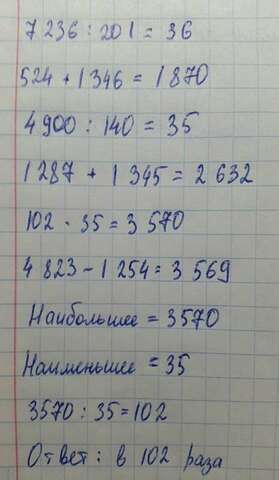 7 236 : 201 = 36
524 + 1 346 = 1 870
4 900 : 140 = 35
1 287 + 1 345 = 2 632
102 · 35 = 3 570
4 823 - 1 254 = 3 569
Наибольшее = 3570
Наименьшее = 35
3570 : 35 = 102
Ответ: в 102 раза